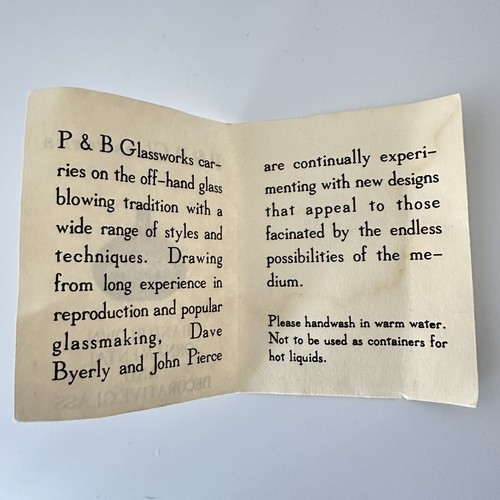 P & B Glassworks car-
ries on the off-hand glass
blowing tradition with a
wide range of styles and
techniques. Drawing
from long experience in
reproduction and popular
glassmaking, Dave
Byerly and John Pierce
are continually experi-
menting with new designs
that appeal to those
facinated by the endless
possibilities of the me-
dium.
Please handwash in warm water.
Not to be used as containers for
hot liquids.